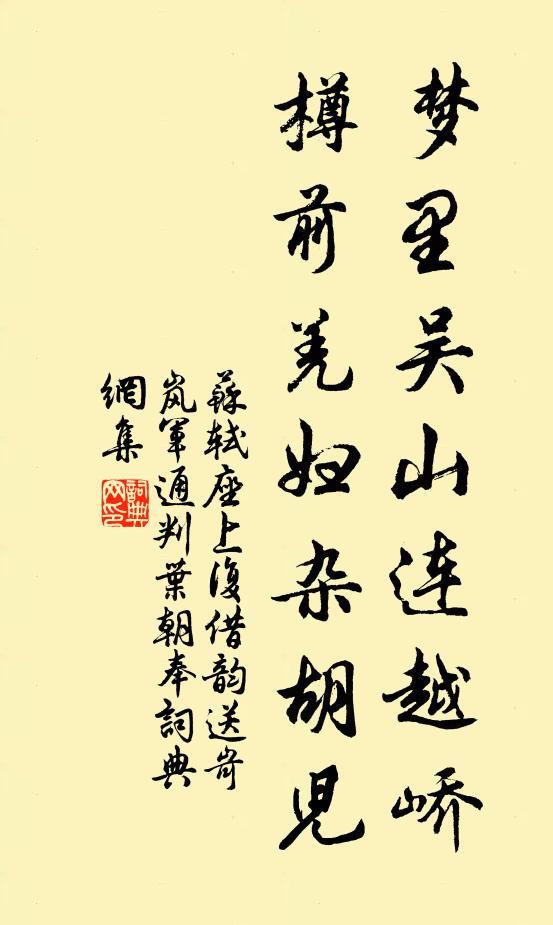 梦里吴山连越峤
樽前羌妇杂胡児
蘇軾座上復借韵送岢
岚軍通判葉朝奉詞典
網集
詞典
网印